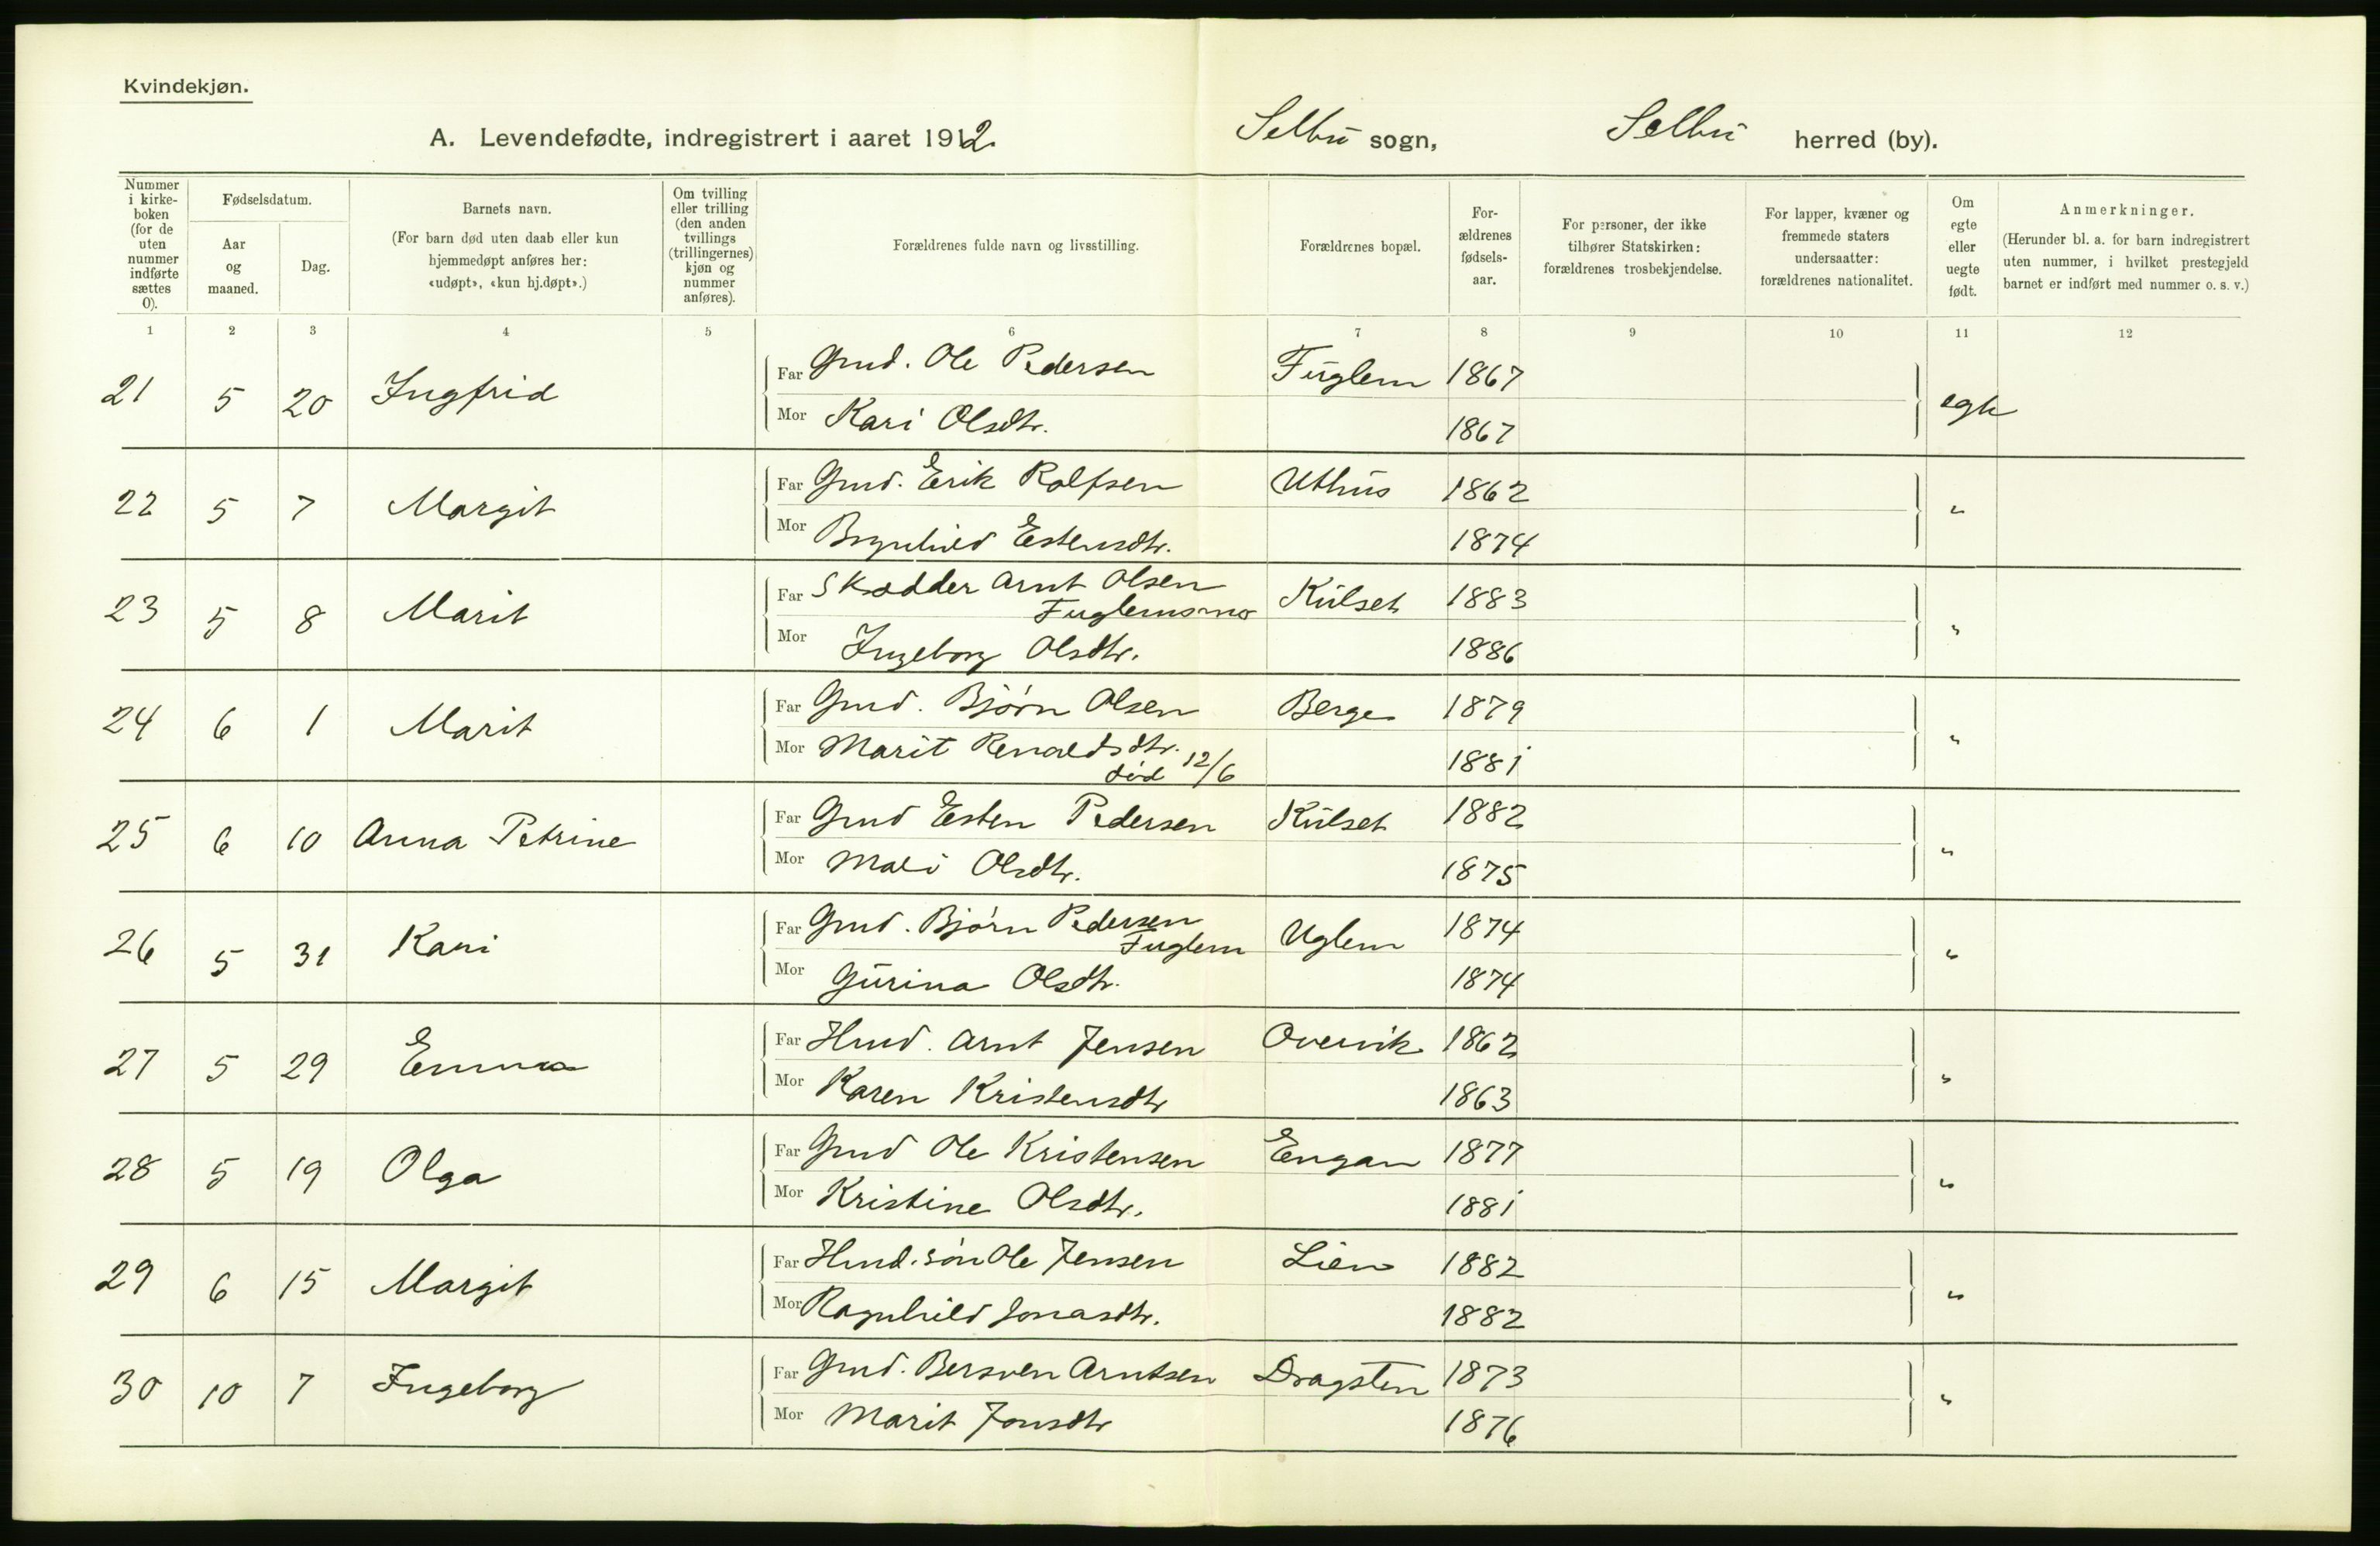 Kvindekjøn.
A. Levendefødte, indregistrert i aaret 1912. Selbu sogn, Selbu herred (by).
Nummer i kirke-boken (for de uten nummer indførte sættes 0).
Fødselsdatum.
Aar og maaned.
Dag.
Barnets navn.
(For barn død uten daab eller kun hjemmedøpt anføres her: «udøpt», «kun hj.døpt».)
Om tvilling eller trilling (den anden tvillings (trillingernes) kjøn og nummer anføres).
Forældrenes fulde navn og livsstilling.
Forældrenes bopæl.
For-ældrenes fødsels-aar.
For personer, der ikke tilhører Statskirken: forældrenes trosbekjendelse.
For lapper, kvæner og fremmede staters undersaatter: forældrenes nationalitet.
Om egte eller uegte født.
Anmerkninger.
(Herunder bl. a. for barn indregistrert uten nummer, i hvilket prestegjeld barnet er indført med nummer o. s. v.)
1 2 3 4 5 6 7 8 9 10 11 12
21 5 20 Ingfrid Far Gmd. Ole Pedersen Fuglem 1867 egte
Mor Kari Olsdtr. 1867
22 5 7 Margit Far Gmd. Erik Rolfsen Uthus 1862 "
Mor Brynhild Estensdtr. 1874
23 5 8 Marit Far Skrædder Arnt Olsen Fuglemsmo Kulset 1883 "
Mor Ingeborg Olsdtr. 1886
24 6 1 Marit Far Gmd. Bjørn Olsen Berge 1879 "
Mor Marit Renaldsdtr. død 12/6 1881
25 6 10 Anna Petrine Far Gmd Esten Pedersen Kulset 1882 "
Mor Mali Olsdtr. 1875
26 5 31 Kari Far Gmd. Bjørn Pedersen Fuglem Uglem 1874 "
Mor Gurina Olsdtr. 1874
27 5 29 Emma Far Hmd. Arnt Jensen Overvik 1862 "
Mor Karen Kristensdtr 1863
28 5 19 Olga Far Gmd Ole Kristensen Engan 1877 "
Mor Kristine Olsdtr. 1881
29 6 15 Margit Far Hmd. søn Ole Jensen Lien 1882 "
Mor Ragnhild Jonasdtr. 1882
30 10 7 Ingeborg Far Gmd. Bersven Arntsen Dragsten 1873 "
Mor Marit Jonsdtr 1876